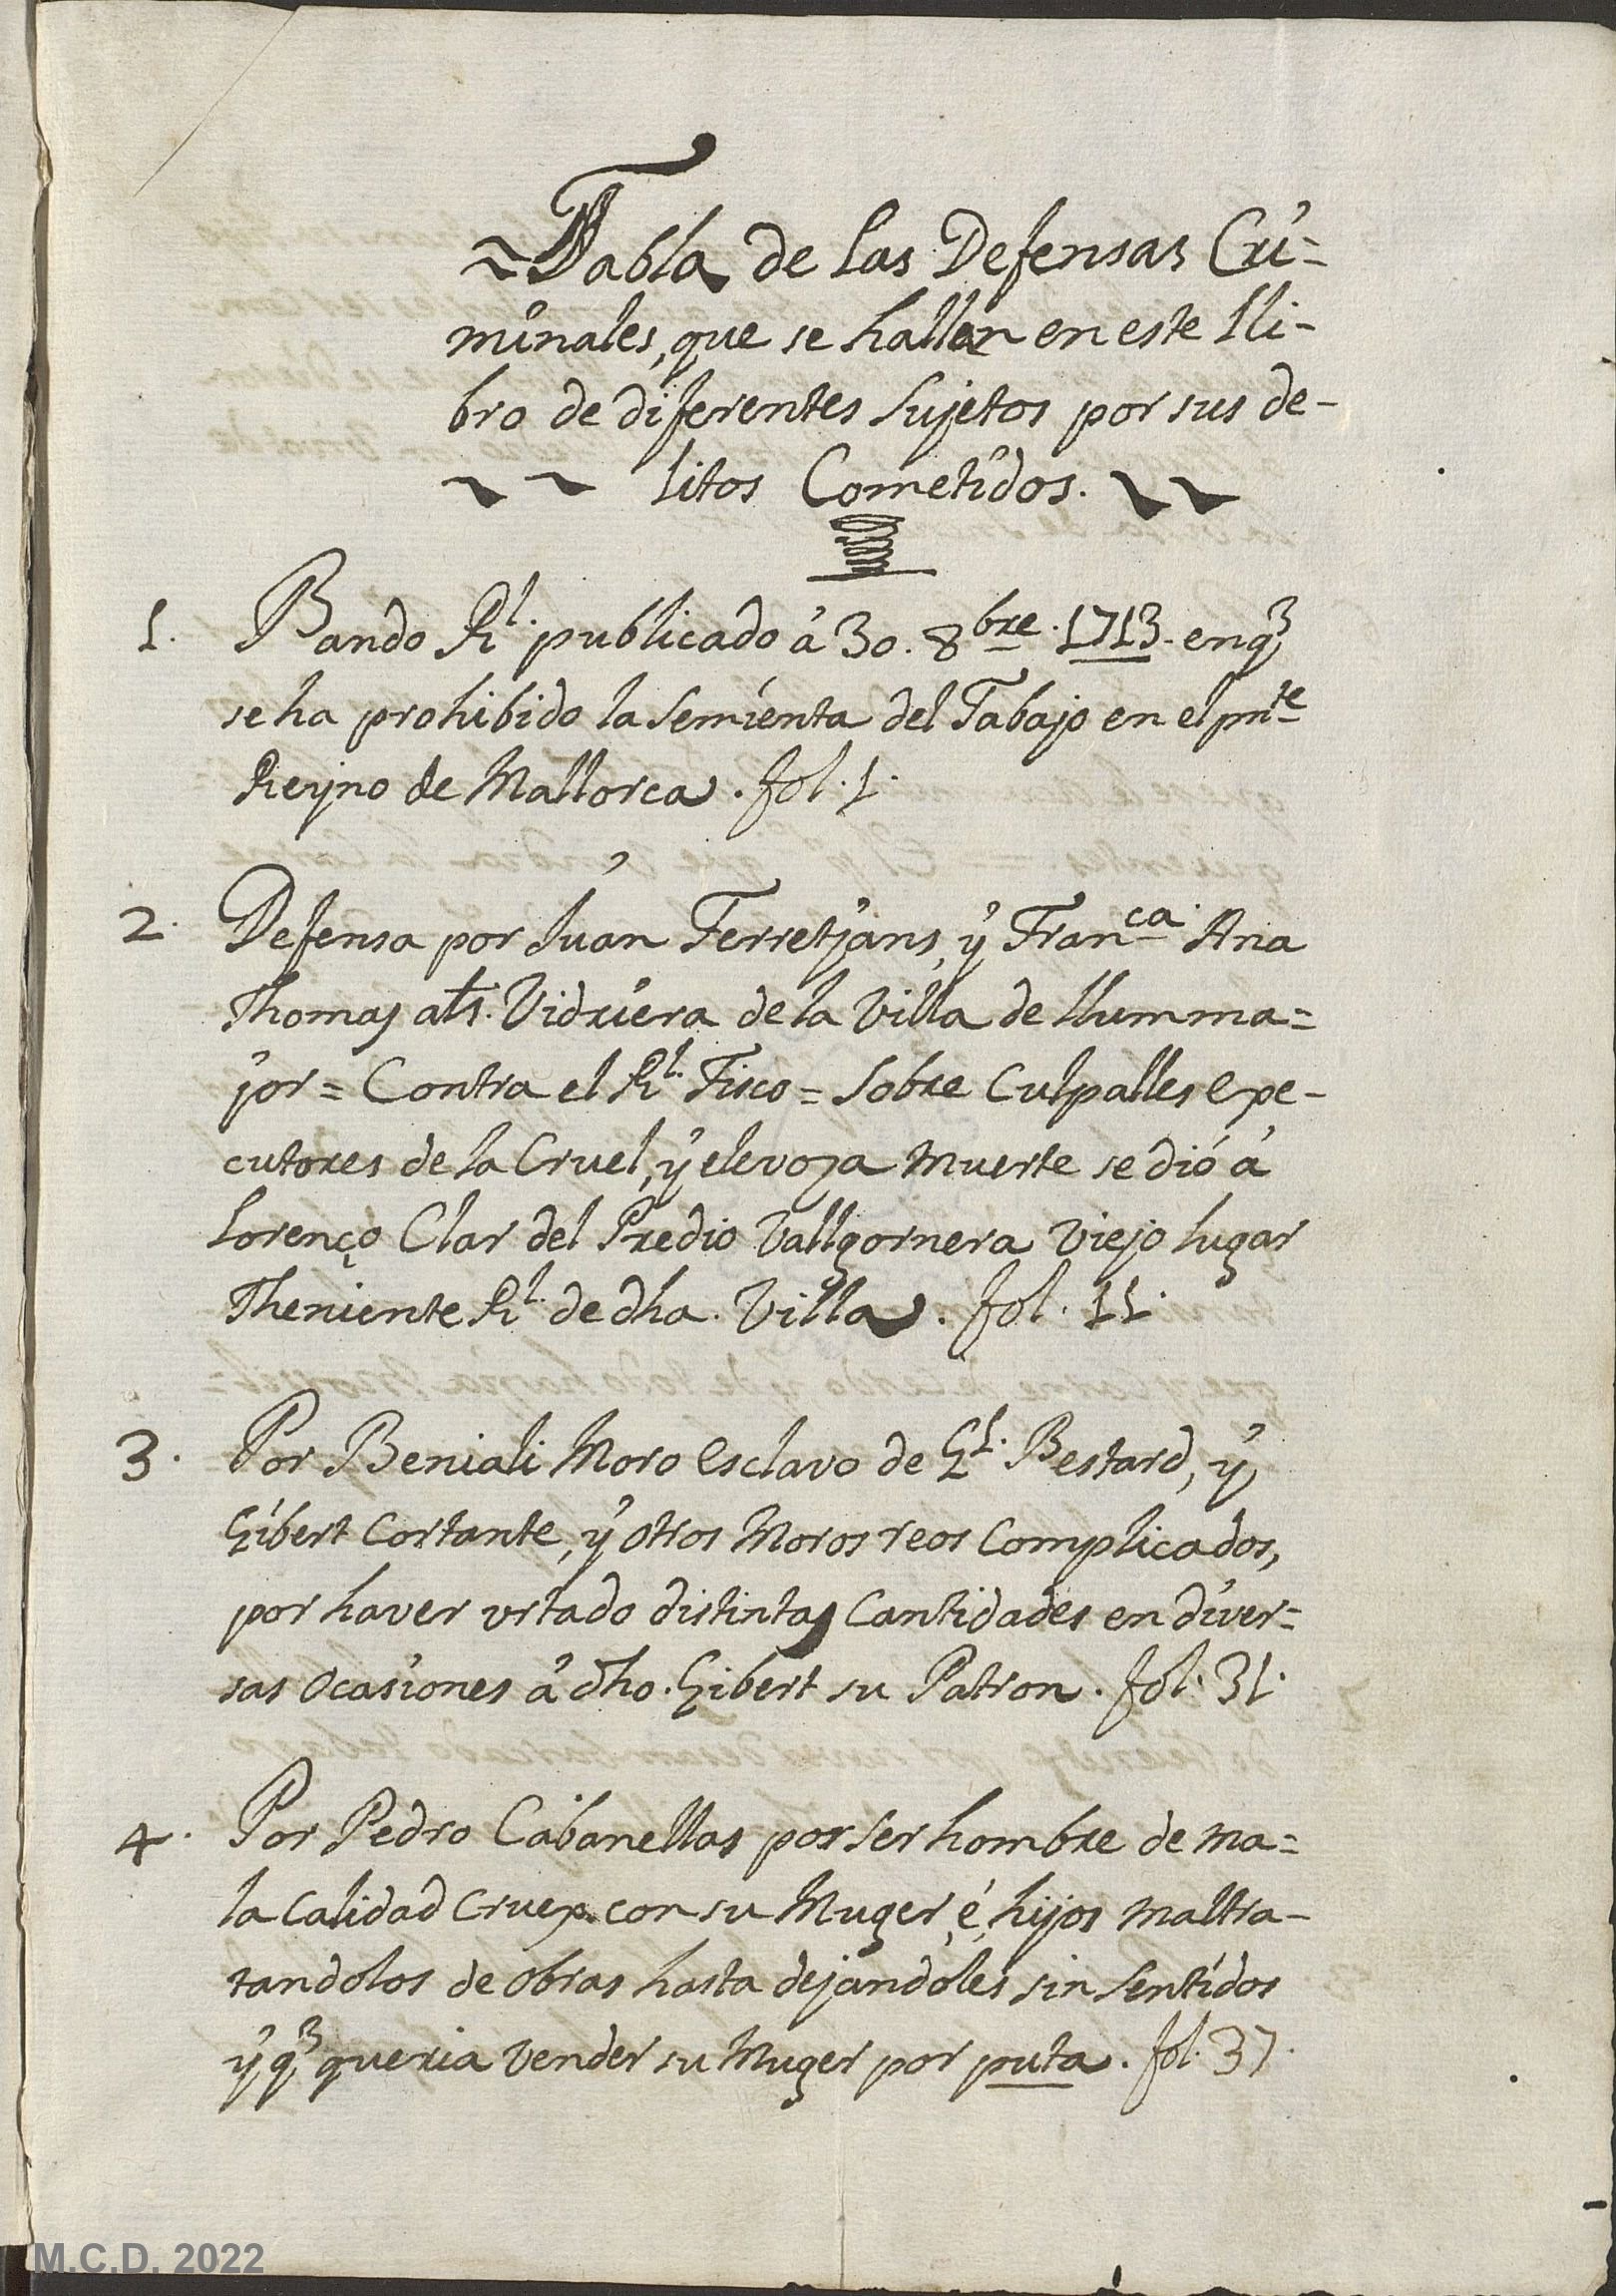 Tabla de las Defensas Cri=
minales, que se hallan en este lli-
bro de diferentes sujetos por sus de-
litos Cometidos.
1. Bando Rl. publicado á 30. 8bre. 1713. en q
se ha prohibido la semienta del Tabajo en el pnte
Reyno de Mallorca. fol. 1.
2. Defensa por Juan Ferretjans, y Franca. Ana
Thomas als. Vidriera de la Villa de llumma=
jor = Contra el Rl. Fisco = Sobre Culpalles exe-
cutores de la Cruel, y elevoza muerte se dió á
Lorenço Clar del Predio Vallgornera Viejo lugar
Theniente Rl. de dha. Villa. fol. 11.
3. Por Beniali Moro esclavo de Bestard, y
Gibert Cortante, y otros Moros reos Complicados,
por haver urtado distintas Cantidades en diver=
sas Ocasiones á dho. Gibert su Patron. fol. 31.
4. Por Pedro Cabanellas por ser hombre de ma=
la Calidad Cruel con su Muger, é, hijos maltra-
tandolos de obras hasta dejandoles sin sentidos
y q queria vender su Muger por puta. fol. 37.
M.C.D. 2022